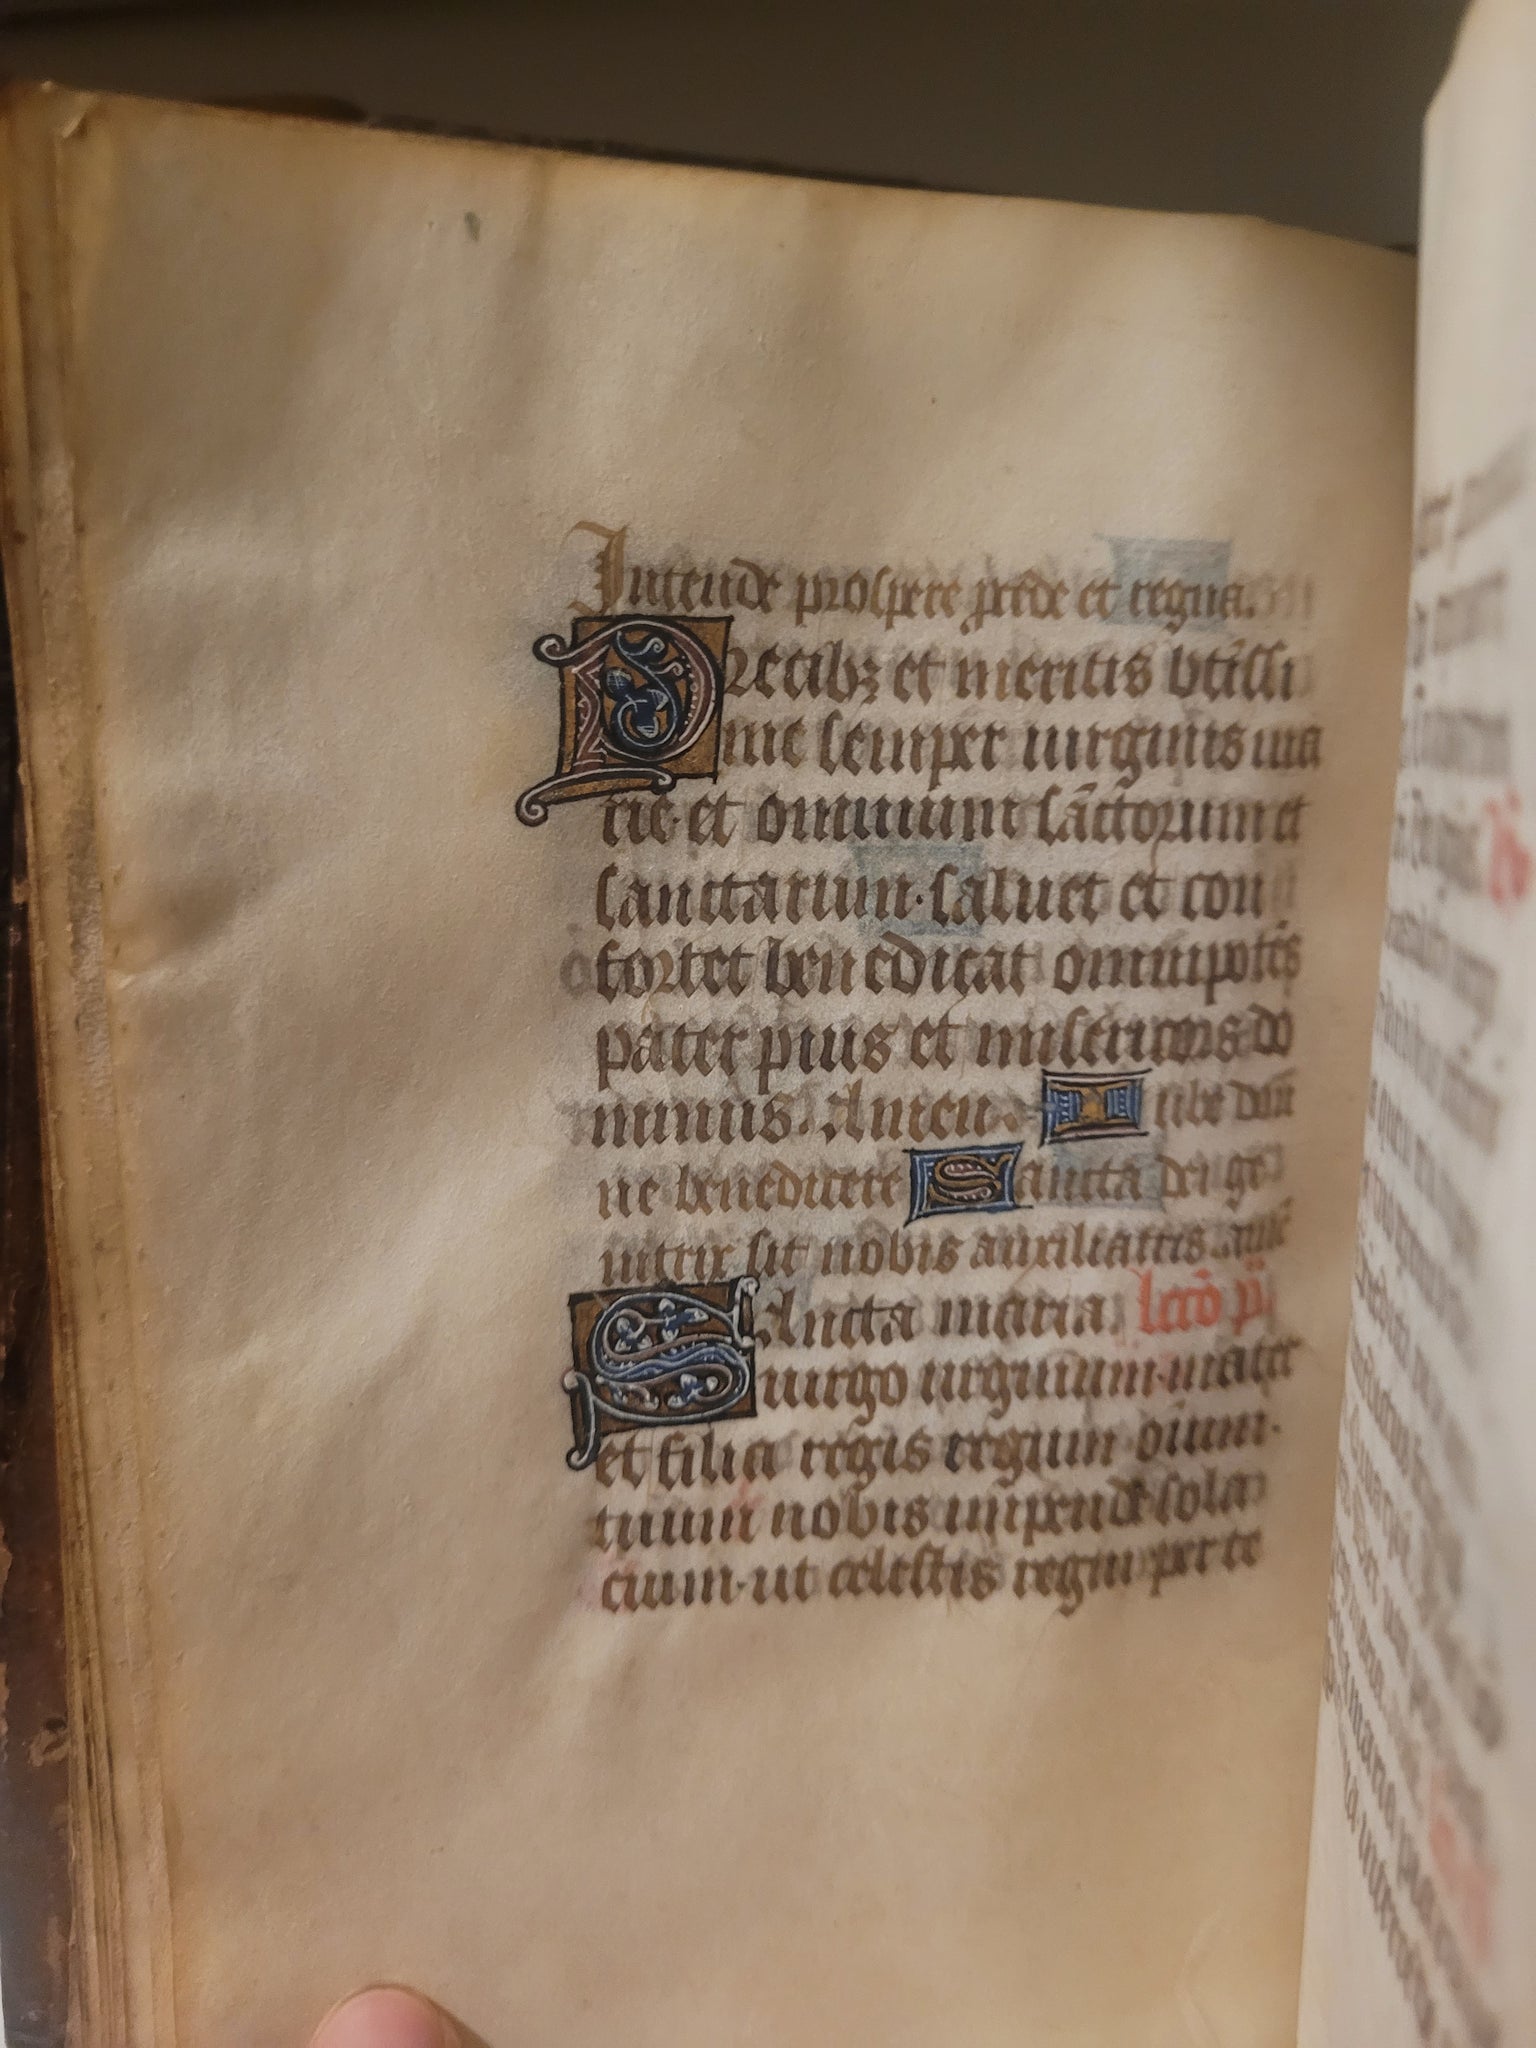 Intende prospere p̄cede et regna.
Precibꝫ et meritis btīssi
me semper uirginis ma
rie· et omnium sāctorum et
sanctarum· saluet et con
fortet benedicat omnipotēs
pater pius et misericors do
minus. Amen. Iube dom̄
ne benedicere Sancta dei ge
nitrix sit nobis auxiliatris. am̄
SAncta maria. lectō p̄
uirgo uirginum· mater
et filia regis regum oīum·
tuum nobis inpende sola
cium· ut celestis regni per te